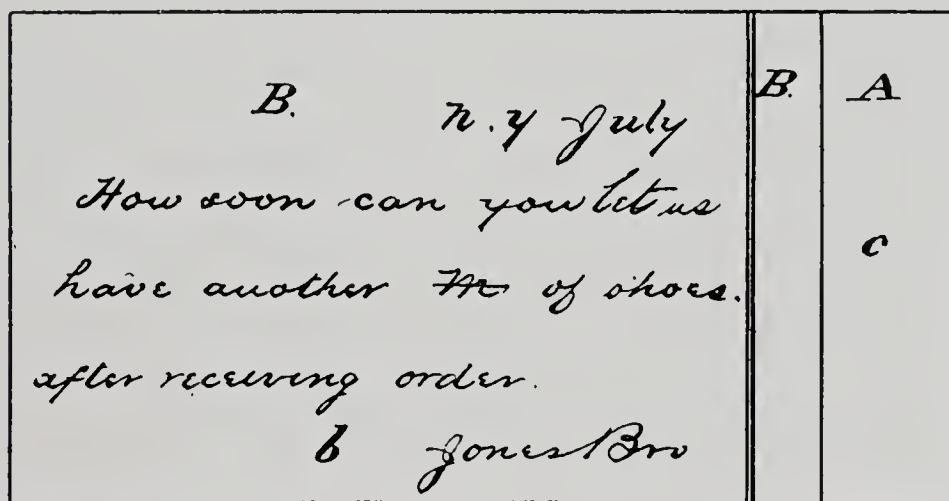 B.
N.Y July
How soon can you let us
have another M of shoes.
after receiving order.
b Jones Bro
B.
A
c